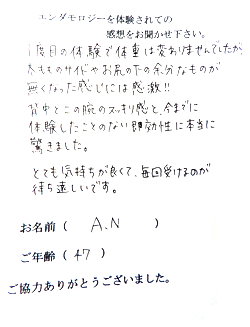 エンダモロジーを体験されての
感想をお聞かせ下さい。
1度目の体験で体重は変わりませんでしたが、
太もものサイドやお尻の下の余分なものが
無くなった感じには感激!!
背中と二の腕のスッキリ感と、今までに
体験したことのない即効性に本当に
驚きました。
とても気持ちが良くて、毎回受けるのが
待ち遠しいです。
お名前( A.N )
ご年齢( 47 )
ご協力ありがとうございました。